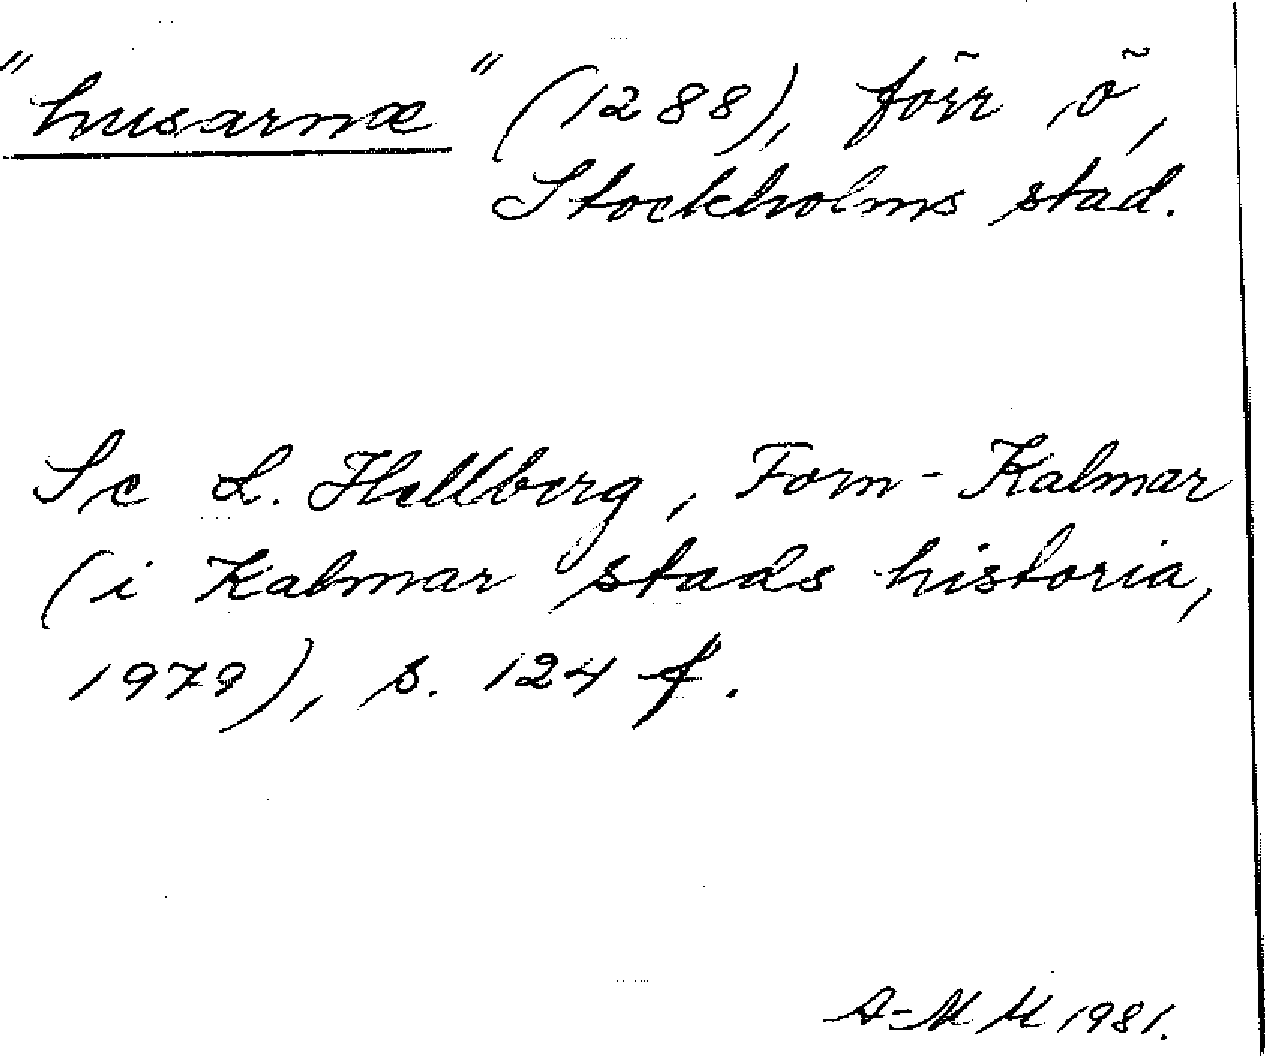 "husarnæ" (1288), förr ö,
Stockholms stad.
Se L. Hellberg, Forn-Kalmar
(i Kalmar stads historia,
1979), s. 124 f.
A-M M 1981.